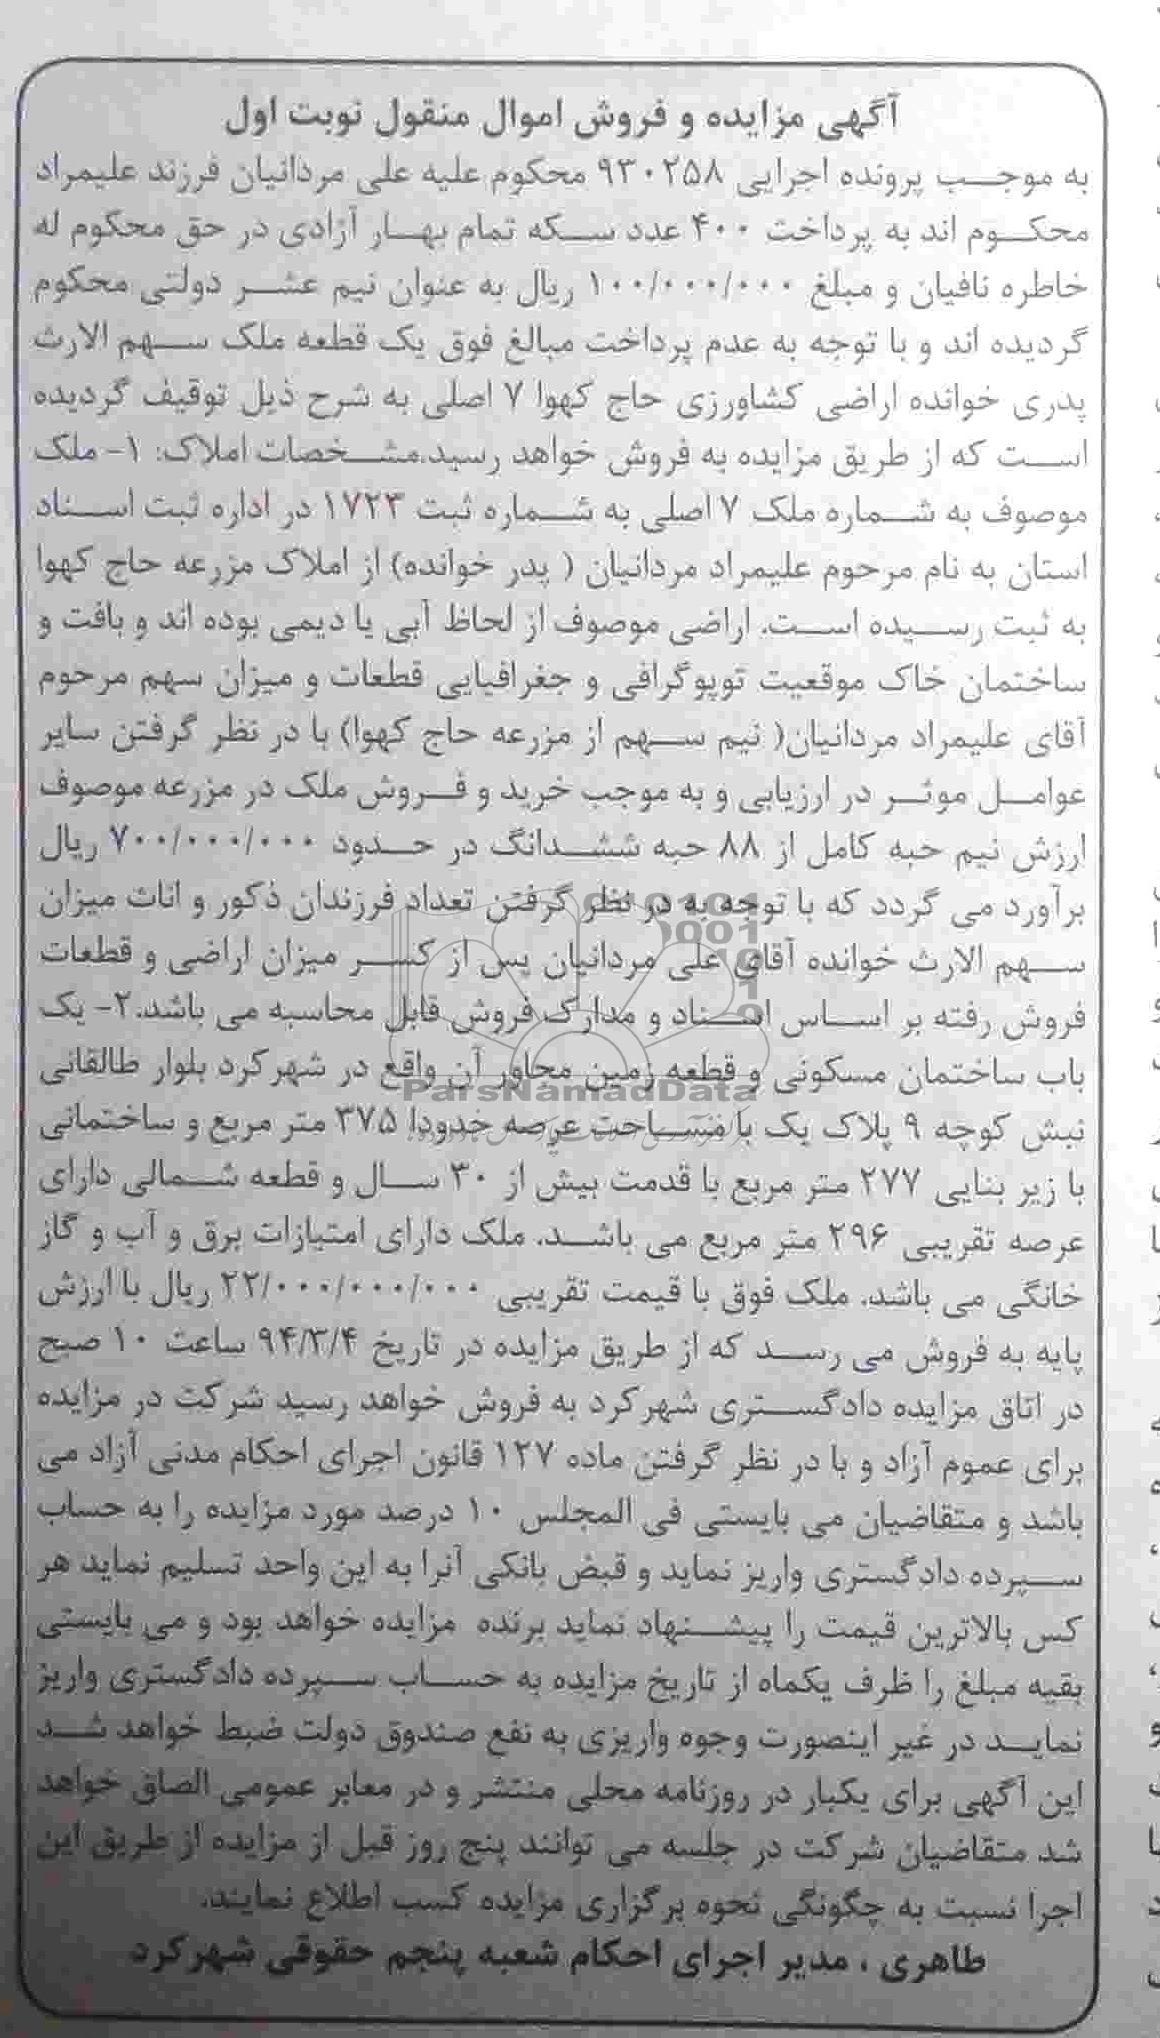 آگهی مزایده و فروش اموال منقول نوبت اول
به موجب پرونده اجرایی ۹۳۰۲۵۸ محکوم علیه علی مردانیان فرزند علیمراد
محکوم اند به پرداخت ۴۰۰ عدد سکه تمام بهار آزادی در حق محکوم له
خاطره نافیان و مبلغ ۱۰۰/۰۰۰/۰۰۰ ریال به عنوان نیم عشر دولتی محکوم
گردیده اند و با توجه به عدم پرداخت مبالغ فوق یک قطعه ملک سهم الارث
پدری خوانده اراضی کشاورزی حاج کهوا ۷ اصلی به شرح ذیل توقیف گردیده
است که از طریق مزایده به فروش خواهد رسید.مشخصات املاک: ۱- ملک
موصوف به شماره ملک ۷ اصلی به شماره ثبت ۱۷۲۳ در اداره ثبت اسناد
استان به نام مرحوم علیمراد مردانیان ( پدر خوانده) از املاک مزرعه حاج کهوا
به ثبت رسیده است. اراضی موصوف از لحاظ آبی یا دیمی بوده اند و بافت و
ساختمان خاک موقعیت توپوگرافی و جغرافیایی قطعات و میزان سهم مرحوم
آقای علیمراد مردانیان( نیم سهم از مزرعه حاج کهوا) با در نظر گرفتن سایر
عوامل موثر در ارزیابی و به موجب خرید و فروش ملک در مزرعه موصوف
ارزش نیم حبه کامل از ۸۸ حبه ششدانگ در حدود ۷۰۰/۰۰۰/۰۰۰ ریال
برآورد می گردد که با توجه به در نظر گرفتن تعداد فرزندان ذکور و اناث میزان
سهم الارث خوانده آقای علی مردانیان پس از کسر میزان اراضی و قطعات
فروش رفته بر اساس اسناد و مدارک فروش قابل محاسبه می باشد.۲- یک
باب ساختمان مسکونی و قطعه زمین مجاور آن واقع در شهرکرد بلوار طالقانی
ParsNamadData
نبش کوچه ۹ پلاک یک با مساحت عرصه حدودا ۳۷۵ متر مربع و ساختمانی
با زیر بنایی ۲۷۷ متر مربع با قدمت بیش از ۳۰ سال و قطعه شمالی دارای
عرصه تقریبی ۲۹۶ متر مربع می باشد. ملک دارای امتیازات برق و آب و گاز
خانگی می باشد. ملک فوق با قیمت تقریبی ۲۲/۰۰۰/۰۰۰/۰۰۰ ریال با ارزش
پایه به فروش می رسد که از طریق مزایده در تاریخ ۹۴/۳/۴ ساعت ۱۰ صبح
در اتاق مزایده دادگستری شهرکرد به فروش خواهد رسید شرکت در مزایده
برای عموم آزاد و با در نظر گرفتن ماده ۱۲۷ قانون اجرای احکام مدنی آزاد می
باشد و متقاضیان می بایستی فی المجلس ۱۰ درصد مورد مزایده را به حساب
سپرده دادگستری واریز نماید و قبض بانکی آنرا به این واحد تسلیم نماید هر
کس بالاترین قیمت را پیشنهاد نماید برنده مزایده خواهد بود و می بایستی
بقیه مبلغ را ظرف یکماه از تاریخ مزایده به حساب سپرده دادگستری واریز
نماید در غیر اینصورت وجوه واریزی به نفع صندوق دولت ضبط خواهد شد
این آگهی برای یکبار در روزنامه محلی منتشر و در معابر عمومی الصاق خواهد
شد متقاضیان شرکت در جلسه می توانند پنج روز قبل از مزایده از طریق این
اجرا نسبت به چگونگی نحوه برگزاری مزایده کسب اطلاع نمایند.
طاهری ، مدیر اجرای احکام شعبه پنجم حقوقی شهرکرد